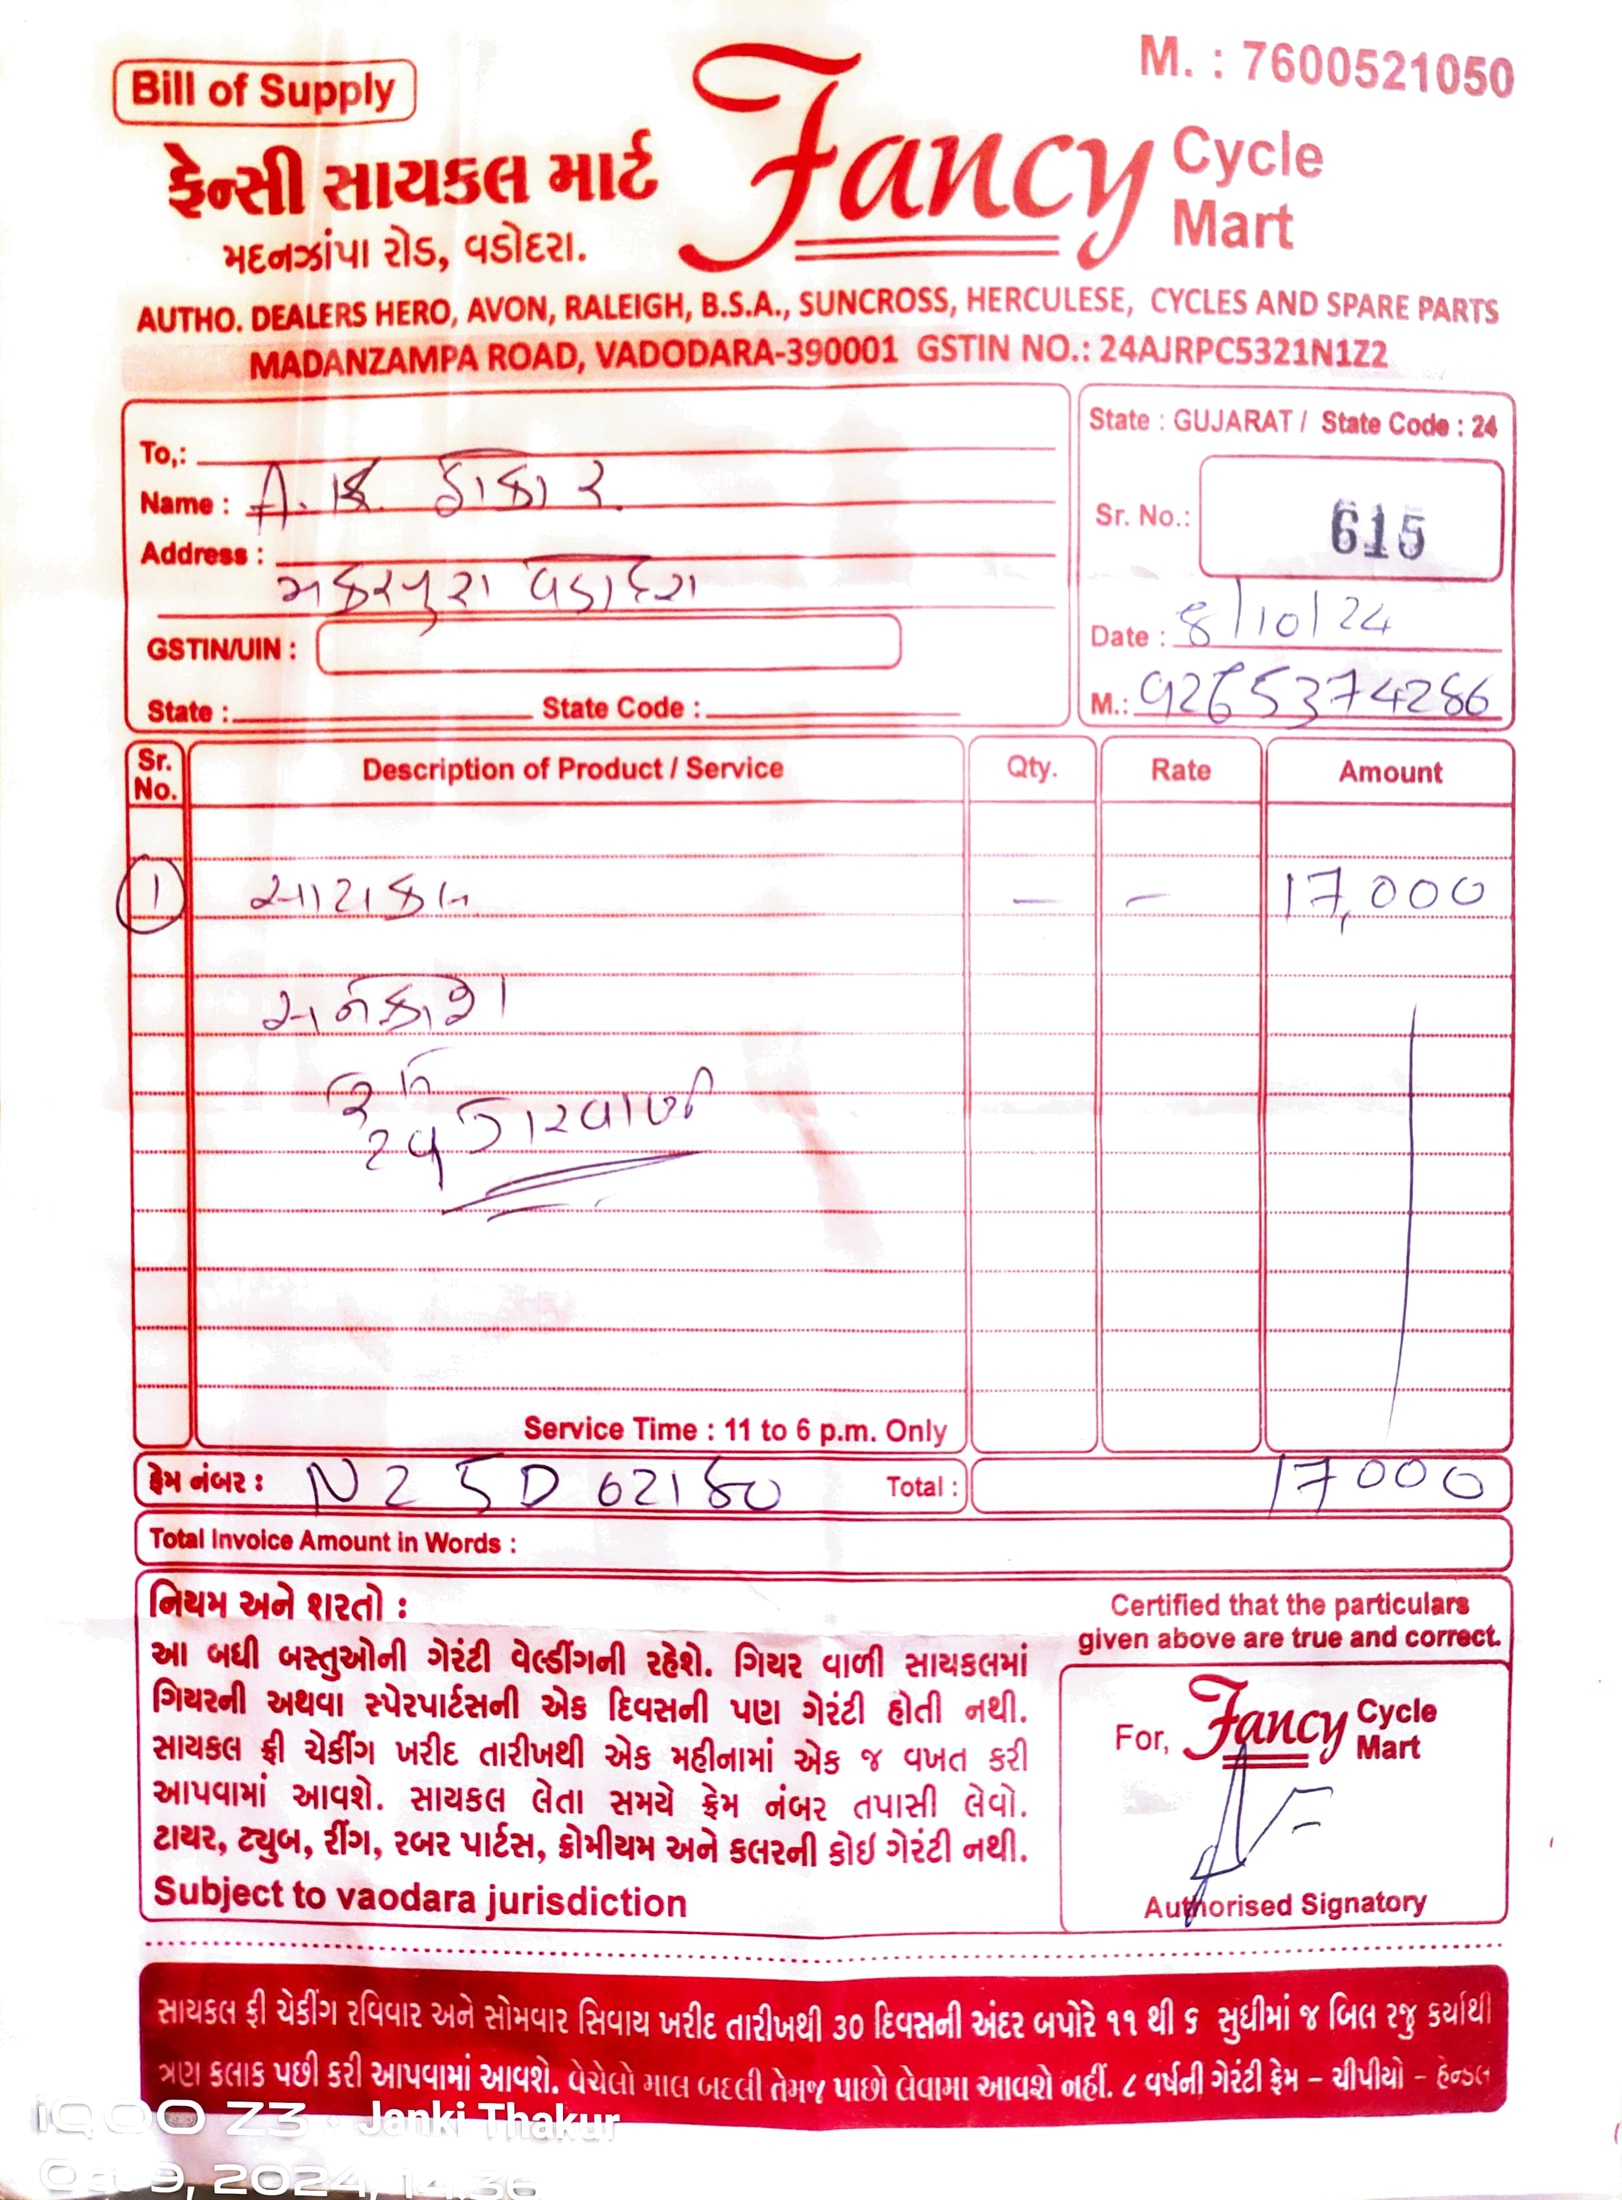 M. : 7600521050
Bill of Supply
ફેન્સી સાયકલ માર્ટ
Fancy Cycle Mart
મદનઝાંપા રોડ, વડોદરા.
AUTHO. DEALERS HERO, AVON, RALEIGH, B.S.A., SUNCROSS, HERCULESE, CYCLES AND SPARE PARTS
MADANZAMPA ROAD, VADODARA-390001 GSTIN NO.: 24AJRPC5321N1Z2
To,:
Name : A. K. ઠાકોર
Address :
મકરપુરા વડોદરા
GSTIN/UIN :
State : State Code :
State : GUJARAT / State Code : 24
Sr. No.: 615
Date : 8/10/24
M.: 9265374286
Sr. No. Description of Product / Service Qty. Rate Amount
1 સાયકલ — — 17,000
Service Time : 11 to 6 p.m. Only
ફ્રેમ નંબર : N25D62180 Total : 17000
Total Invoice Amount in Words :
નિયમ અને શરતો :
આ બધી બસ્તુઓની ગેરંટી વેલ્ડીંગની રહેશે. ગિયર વાળી સાયકલમાં
ગિયરની અથવા સ્પેરપાર્ટસની એક દિવસની પણ ગેરંટી હોતી નથી.
સાયકલ ફ્રી ચેકીંગ ખરીદ તારીખથી એક મહીનામાં એક જ વખત કરી
આપવામાં આવશે. સાયકલ લેતા સમયે ફ્રેમ નંબર તપાસી લેવો.
ટાયર, ટ્યુબ, રીંગ, રબર પાર્ટસ, ક્રોમીયમ અને કલરની કોઇ ગેરંટી નથી.
Subject to vaodara jurisdiction
Certified that the particulars
given above are true and correct.
For, Fancy Cycle Mart
Authorised Signatory
સાયકલ ફ્રી ચેકીંગ રવિવાર અને સોમવાર સિવાય ખરીદ તારીખથી 30 દિવસની અંદર બપોરે ૧૧ થી ૬ સુધીમાં જ બિલ રજુ કર્યાથી
ત્રણ કલાક પછી કરી આપવામાં આવશે. વેચેલો માલ બદલી તેમજ પાછો લેવામા આવશે નહીં. ૮ વર્ષની ગેરંટી ફ્રેમ – ચીપીયો – હેન્ડલ
iQOO Z3 · Janki Thakur
Oct 9, 2024, 14:36